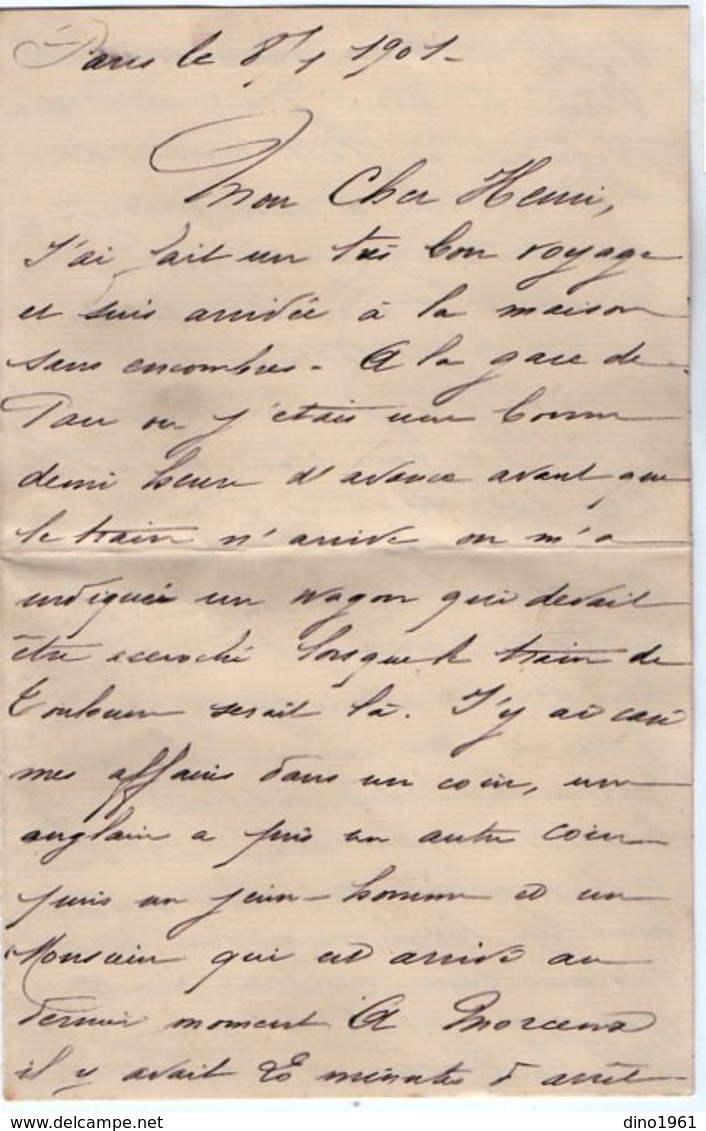 Paris le 8/1 1901-
Mon Cher Henri,
J'ai fait un très bon voyage
et suis arrivée à la maison
sans encombres - A la gare de
Pau où j'étais une bonne
demi heure d'avance avant que
le train n'arrive on m'a
indiquée un wagon qui devait
être accroché lorsque le train de
Toulouse serait là. J'y ai casé
mes affaires dans un coin, un
anglais a pris un autre coin
puis un jeune-homme et un
Monsieur qui est arrivé au
dernier moment A Morcenx
il y avait minutes d'arrêt
dino1961